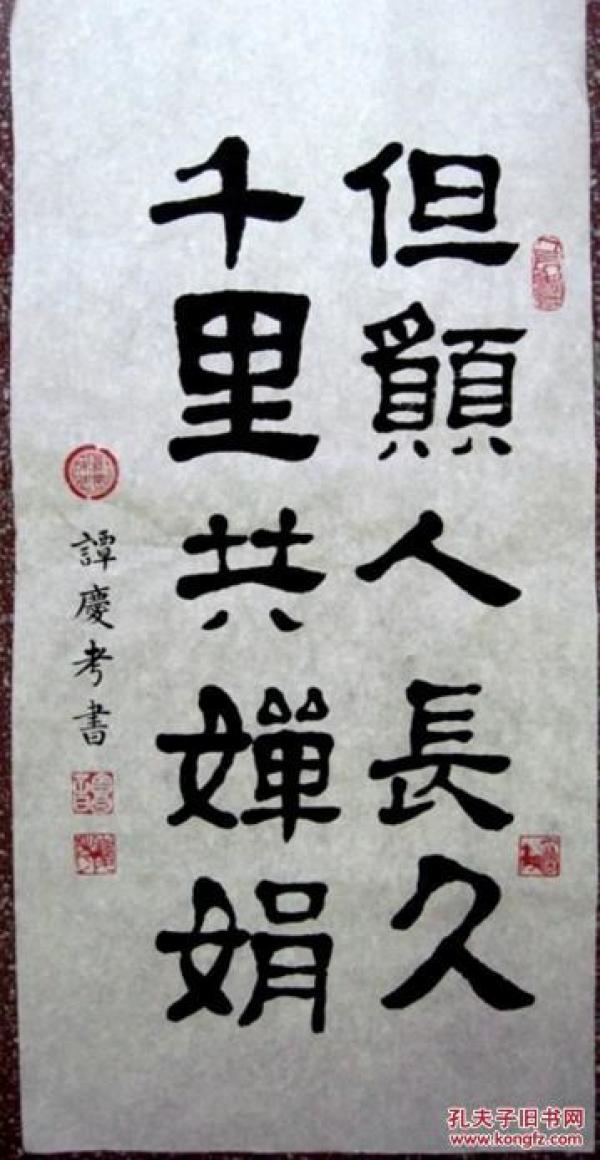 但願人長久
千里共嬋娟
譚慶考書
孔夫子旧书网
www.kongfz.com